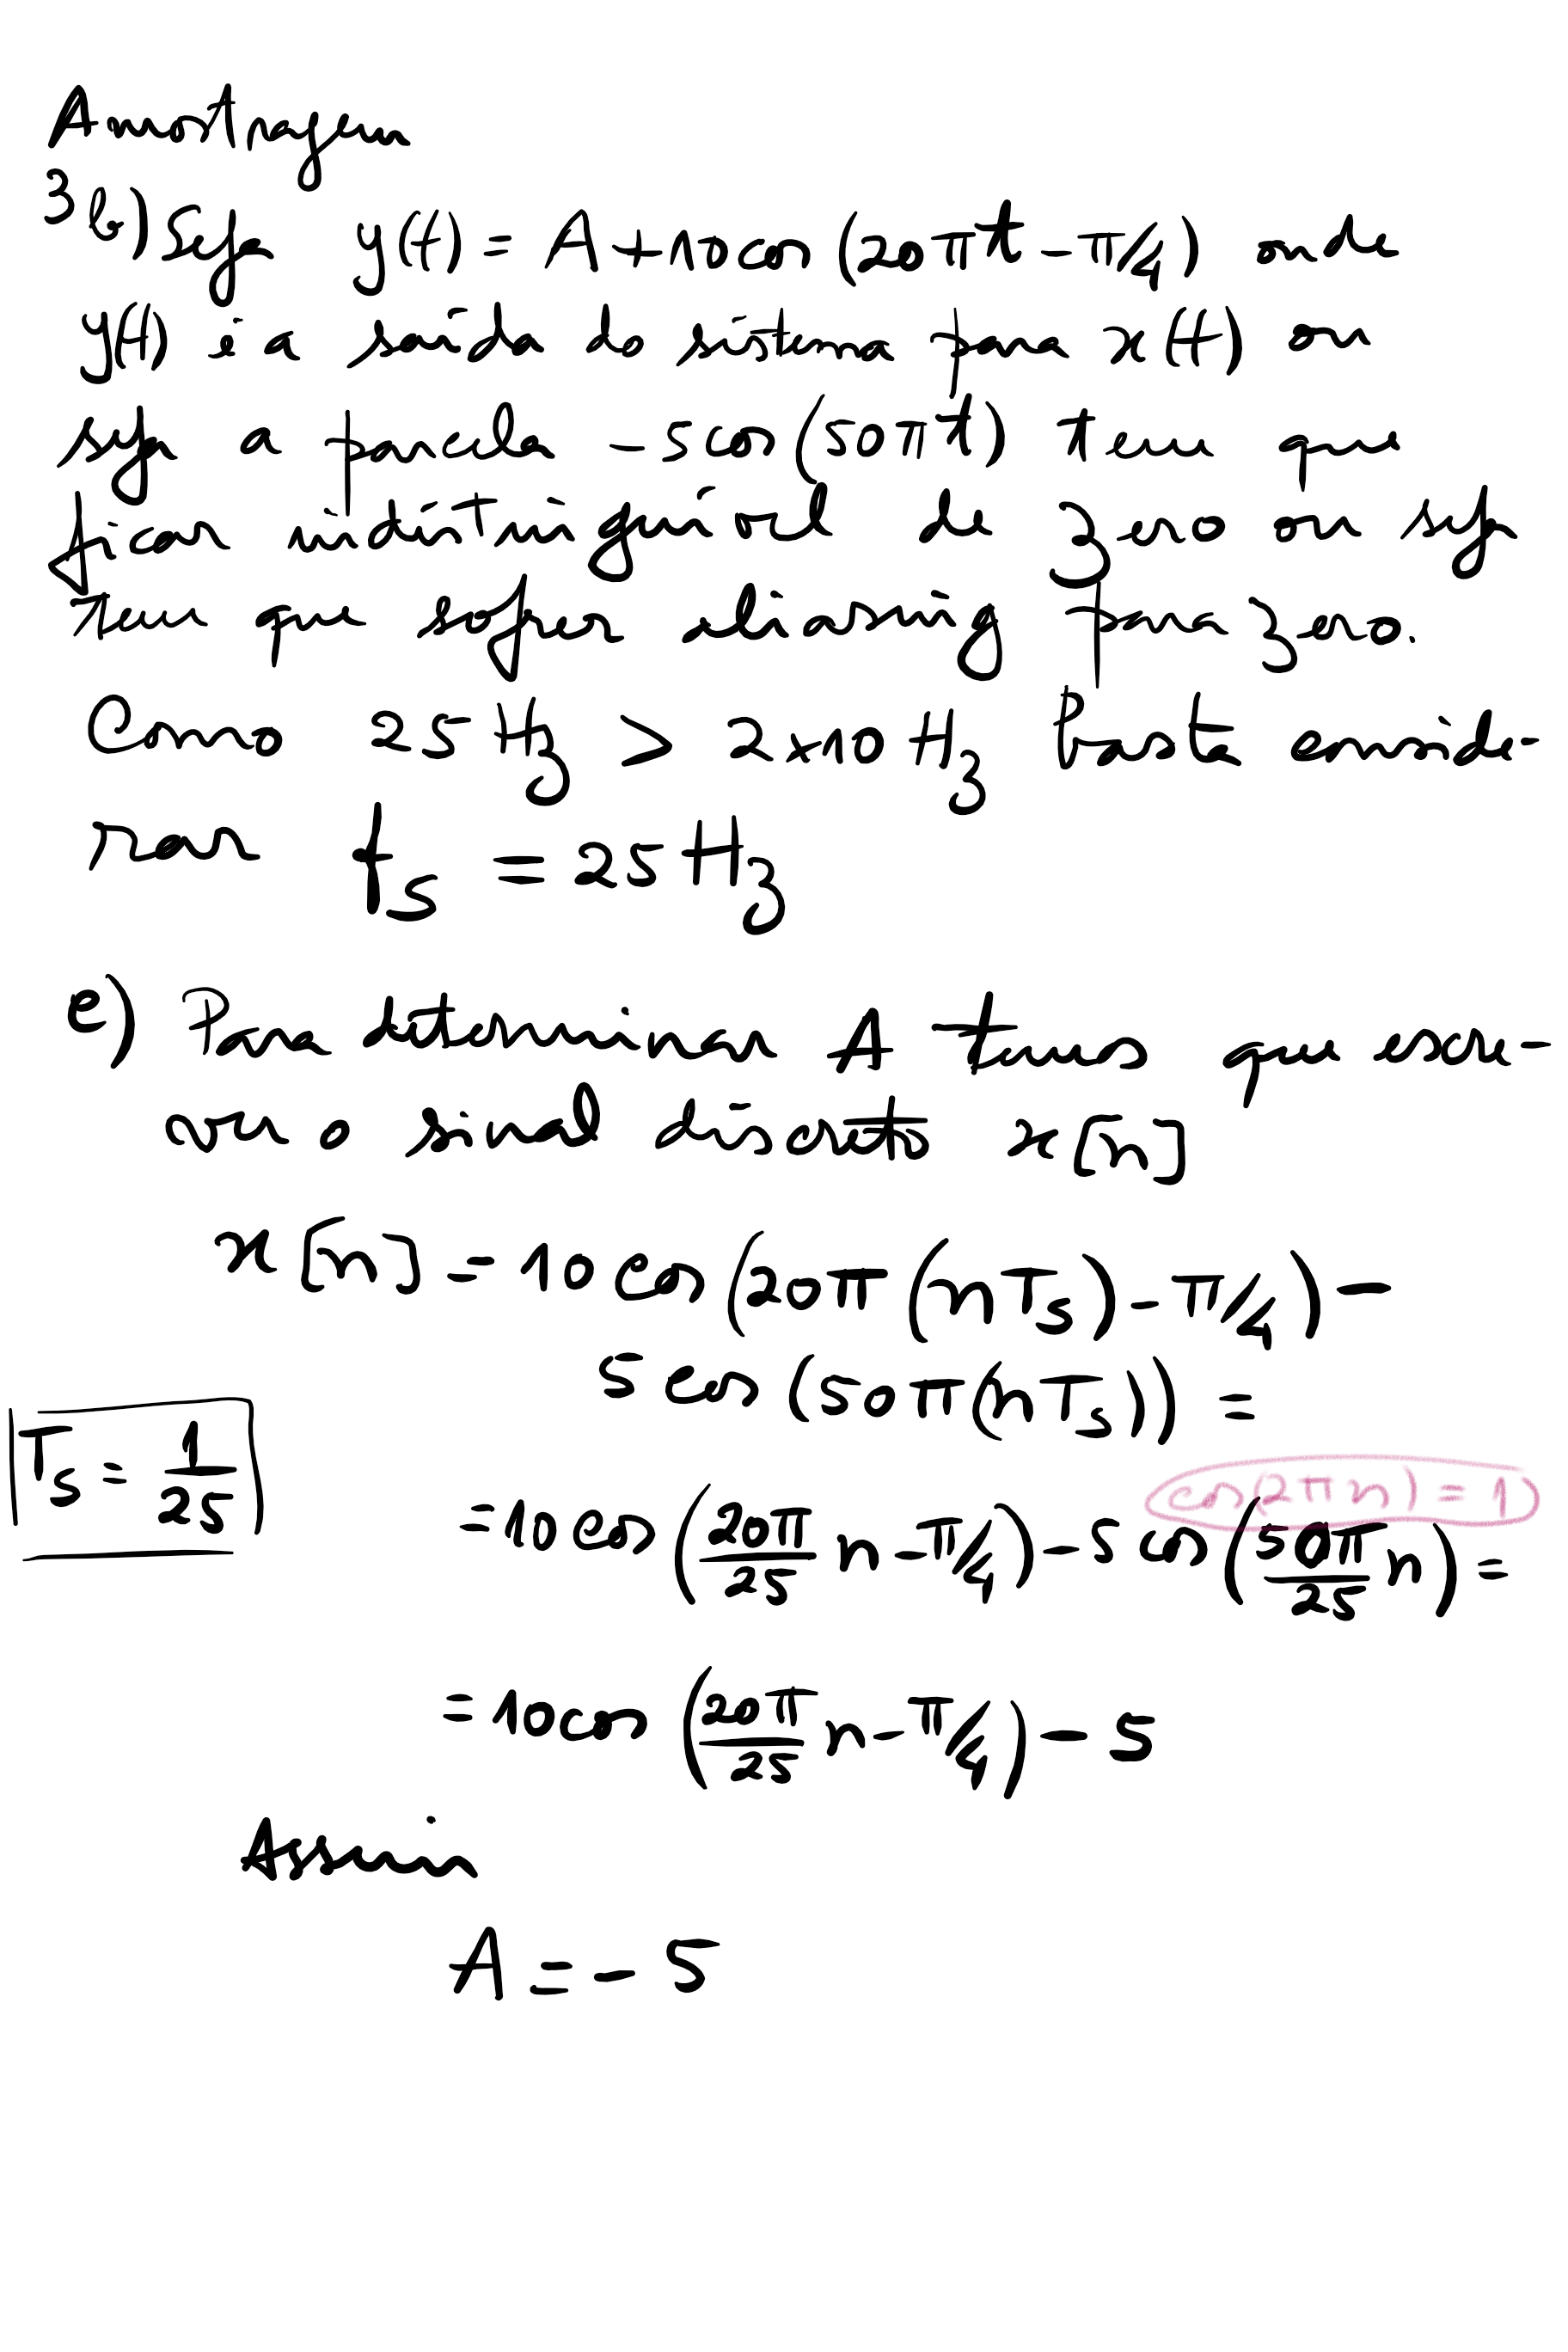 Amostragem
3b) Seja y(t) = A + 10 cos (20πt - π/4) onde
y(t) é a saída do sistema para x(t) ou
seja a parcela -5 cos (50πt) tem que
ficar indistinguível de zero ou seja
tem que sofrer aliasing para zero.
Como 25 Hz > 2×10 Hz basta conside-
rar fs = 25 Hz
c) Para determinar A temos que escre-
ver o sinal discreto x[n]
x[n] = 10 cos (20π (nTs) - π/4) -
5 cos (50π(nTs)) =
Ts = 1/25
cos(2πn) = 1
= 10 cos (20π/25 n - π/4) - 5 cos (50π/25 n) =
= 10 cos (20π/25 n - π/4) - 5
Assim
A = - 5